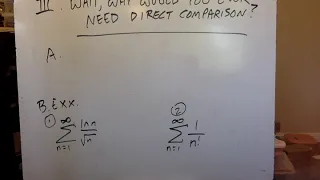 III. WAIT, WHY WOULD YOU EVER
NEED DIRECT COMPARISON?
A.
B. EXX.
① ②
∞ ∑ n=1 ln n / √n ∞ ∑ n=1 1 / n!